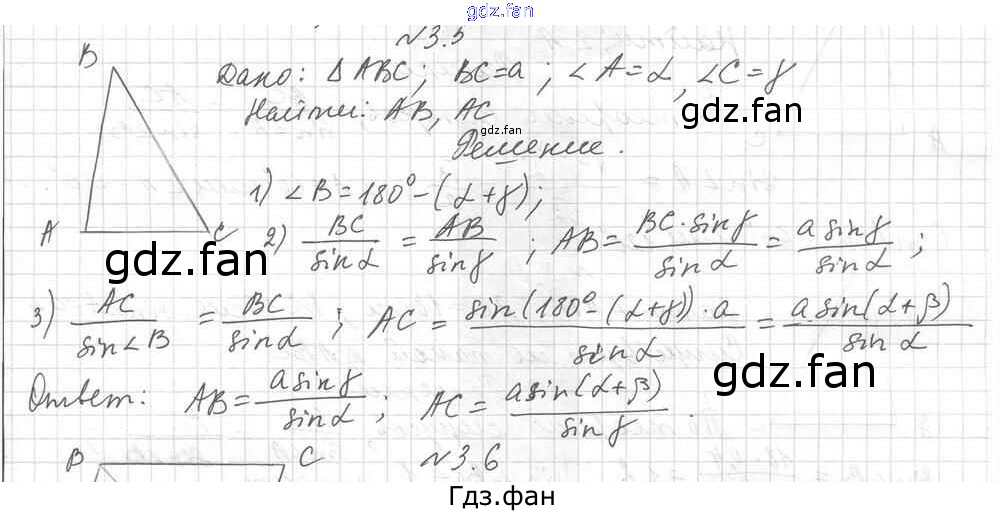 gdz.fan
№3.5
B
Дано: Δ ABC; BC=a; ∠A=α, ∠C=γ
gdz.fan
Найти: AB, AC
gdz.fan
Решение.
1) ∠B=180°-(α+γ);
A C
2) BC/sinα = AB/sinγ ; AB= BC·sinγ/sinα = a sinγ/sinα ;
gdz.fan
3) AC/sin∠B = BC/sinα ; AC = sin(180°-(α+γ))·a/sinα = a sin(α+β)/sinα
gdz.fan
Ответ: AB= a sinγ/sinα ; AC= a sin(α+β)/sinγ .
B C №3.6
Гдз.фан